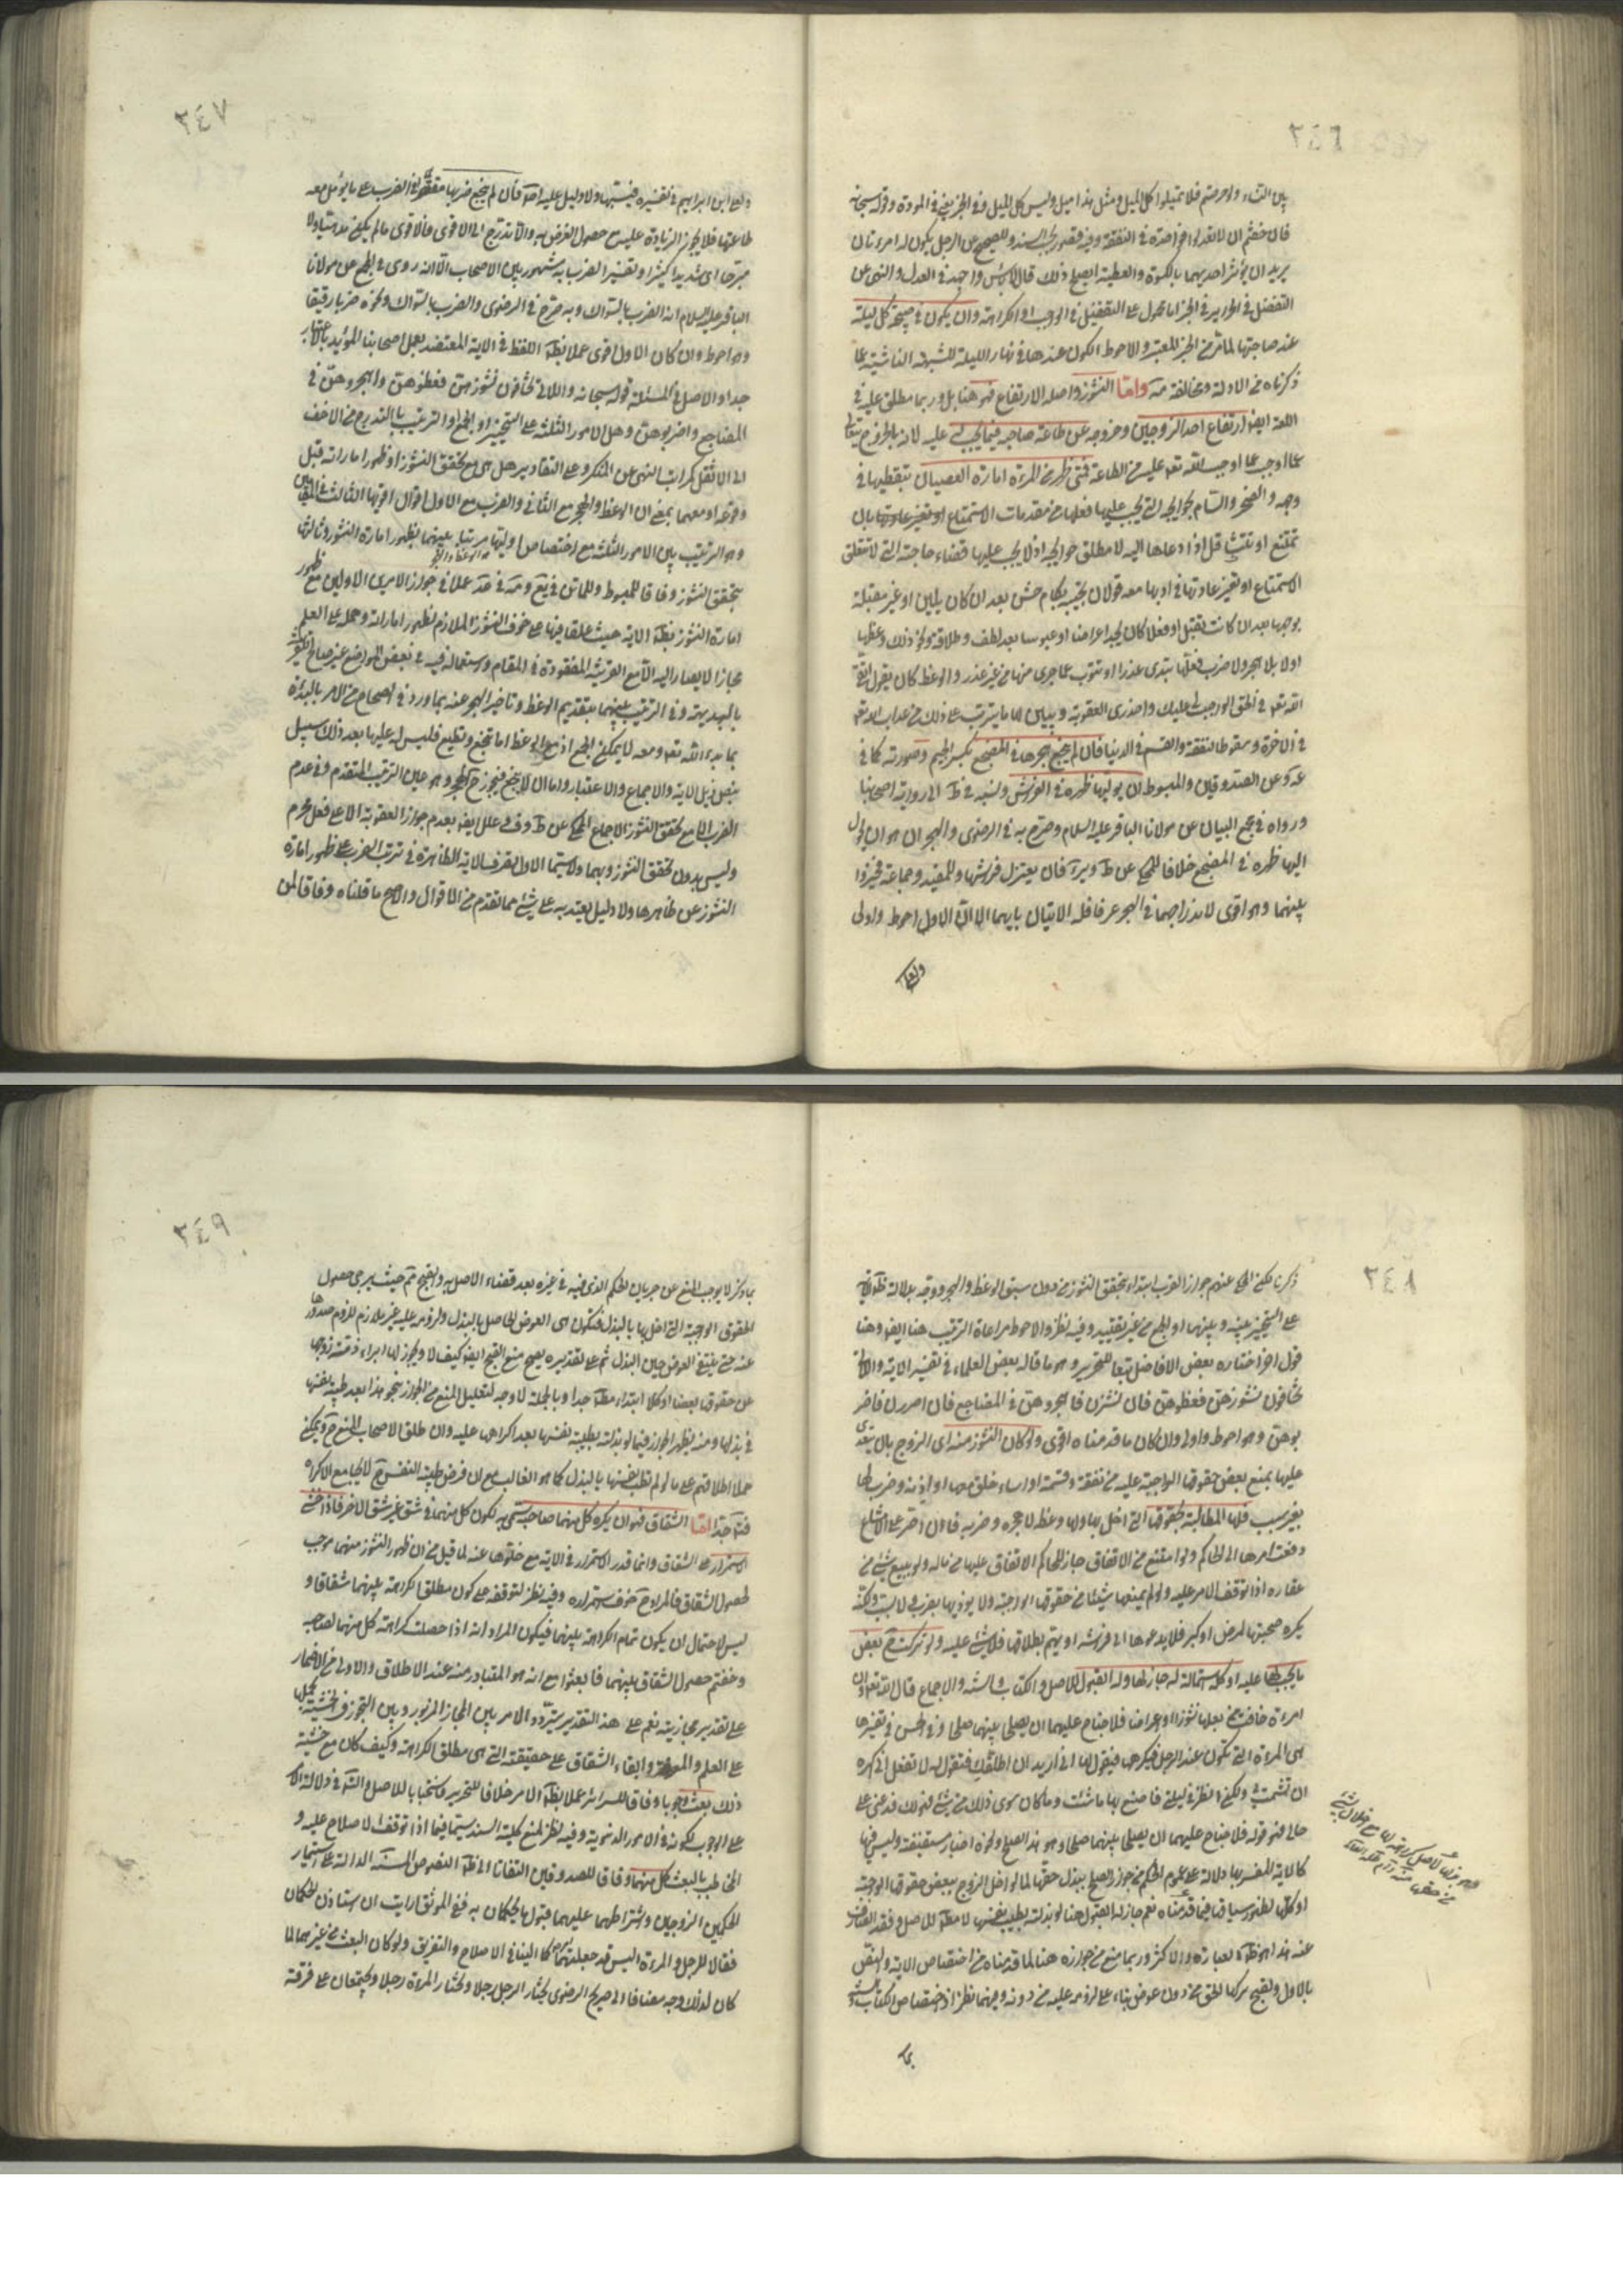 ٣٤٦
بين النساء ولو حرصتم فلا تميلوا كل الميل ومثل هذا ميل وليس كل الميل وفي الخبر يعني في المودة وقوله سبحانه
فان خفتم ان لا تعدلوا فواحدة في النفقة وفيه قصور بحسب السند وللصحيح عن الرجل يكون له امرءتان
يريد ان يؤثر احديهما بالكسوة والعطية ايصلح ذلك قال لا بأس واجهد في العدل والنهي عن
التفضيل في الحراير في الخبر اما محمول على التفضيل في الواجب او الكراهة وان يكون في صبيحة كل ليلة
عند صاحبتها لما مر من الخبر المعتبر والاحوط الكون عندها في نهار الليلة للشبهة الناشئة مما
ذكرناه من الادلة ومخالفته واما النشوز واصله الارتفاع فهو هنا بل وربما يطلق عليه في
اللغة ايضا ارتفاع احد الزوجين وخروجه عن طاعة صاحبه فيما يجب له عليه لانه بالخروج يتعالى
عما اوجب الله تعالى عليه من الطاعة فمتى ظهر من المرءة امارة العصيان بتقطيبها في
وجهه والضجر والسأم بحوايجه التي يجب عليها فعلها من مقدمات الاستمتاع او تغير عادتها بان
تمتنع او تتثاقل اذا دعاها اليه لا مطلق حوايجه اذ لا يجب عليها قضاء حاجته التي لا تتعلق
الاستمتاع او تغير عادتها في ادبها معه قولا كان تجيبه بكلام خشن بعد ان كان بلين او غير مقبلة
بوجهها بعد ان كانت تقبل او فعلا كان يجد اعراضا او عبوسا بعد لطف وطلاقة ونحو ذلك وعظها
اولا بلا هجر ولا ضرب فلعلها تبدى عذرا او تتوب عما جرى منها من غير عذر والوعظ كان يقول اتقى
الله تعالى في الحق الواجب لي عليك واحذرى العقوبة ويبين لها ما يترتب على ذلك من عذاب الله تعالى
في الاخرة وسقوط النفقة والقسم في الدنيا فان لم ينجع هجرها في المضجع بكسر الجيم وصورته كما في
عن الصدوقين والمبسوط ان يوليها ظهره في الفراش ونسبه في ط الى رواية اصحابنا
ورواه في مجمع البيان عن مولانا الباقر عليه السلام وصرح به في الرضوى والهجران هو ان يحول
اليها ظهره في المضجع خلافا للمحكى عن ط وير فان يعتزل فراشها وللمفيد وجماعة فخيروا
بينهما وهو اقوى لاندراجهما في الهجر عرفا فله الاتيان بايهما الا ان الاول احوط واولى
ولعلى
٣٤٧
ولعلى ابن ابراهيم في تفسيره فيسبها ولا دليل عليه فان لم ينجع ضربها مقتصرا في الضرب على ما يؤمل معه
طاعتها فلا يجوز الزيادة عليه مع حصول الغرض به والا تدرج الى الاقوى فالاقوى ما لم يكن مدميا ولا
مبرحا اى شديدا كثيرا وتفسير الضرب به مشهور بين الاصحاب الا انه روى في المجمع عن مولانا
الباقر عليه السلام انه الضرب بالسواك وبه صرح في الرضوى والضرب بالسواك ونحوه ضربا رفيقا
وهو احوط وان كان الاول اقوى عملا باطلاق اللفظ في الاية المعتضد بعمل اصحابنا المؤيد بالاعتبار
جدا والاصل في المسئلة قوله سبحانه واللاتي تخافون نشوزهن فعظوهن واهجروهن في
المضاجع واضربوهن وهل الامور الثلثة على التخيير او الجمع او الترتيب بالتدريج من الاخف
الى الاثقل كمراتب النهى عن المنكر وعلى التقادير هل هي مع تحقق النشوز او ظهور اماراته قبل
وقوعه او معهما بمعنى ان الوعظ والهجر مع الثاني والضرب مع الاول اقوال اقويها الثالث في المقامين
وهو الترتيب بين الامور الثلثة مع اختصاص اوليها مرتبا بينهما بظهور امارة النشوز وثالثها
بتحقق النشوز وفاقا للمبسوط وللماتن في يع
امارة النشوز بظاهر الاية حيث علقا فيها على خوف النشوز الملازم لظهور اماراته وحمله على العلم
مجاز لا يصار اليه الا مع القرينة المفقودة في المقام واستعماله فيه في بعض المواضع غير صالح
بالبديهة وفي الترتيب بينهما بتقديم الوعظ وتاخير الهجر عنه بما ورد في الصحاح من الامر بالبدئة
بما بدء الله تعالى ومعه لا يمكن الجمع اذ مع الوعظ اما تنجع وتطيع فليس له عليها بعد ذلك سبيل
بنص ذيل الاية والاجماع والاعتبار واما ان لا ينجع فيجوز ح الهجر وهو عين الترتيب المتقدم وفي عدم
الضرب الا مع تحقق النشوز الاجماع المحكى عن ط وف وعلل ايضا بعدم جواز العقوبة الا على فعل محرم
وليس بدون تحقق النشوز وبهما ولا سيما الاول يصرف الاية الظاهرة في ترتب الضرب على ظهور امارة
النشوز عن ظاهرها ولا دليل يعتد به على شئ مما تقدم من الاقوال والاصح ما قلناه وفاقا لمن
٣٤٨
ذكرنا لكن المحكى عنهم جواز الضرب ابتداء بتحقق النشوز من دون سبق الوعظ والهجر
على التخيير بينه وبينهما او الجمع من غير تقييد وفيه نظر والاحوط مراعاة الترتيب هنا ايضا وهنا
قول اخر اختاره بعض الافاضل تبعا للتحرير وهو ما قاله بعض العلماء في تفسير الاية واللاتي
تخافون نشوزهن فعظوهن فان نشزن فاهجروهن في المضاجع فان اصررن فاضر
بوهن وهو احوط واولى وان كان ما قدمناه اقوى ولو كان النشوز منه اى الزوج بان يتعدى
عليها بمنع بعض حقوقها الواجبة عليه من نفقة وقسمة او اساءة خلق معها او اذيته وضرب لها
بغير سبب فلها المطالبة بحقوقها التي اخل بها ولها وعظه لا هجره وضربه فان اصر على الامتناع
رفعت امرها الى الحاكم ولو امتنع من الانفاق جاز للحاكم الانفاق عليها من ماله ولو ببيع شئ من
عقاره اذا توقف الامر عليه ولو لم يمنعها شيئا من حقوقها الواجبة ولا يؤذيها بضرب ولا سب ولكنه
يكره صحبتها لمرض او كبر فلا يدعوها الى فراشه او يهم بطلاقها فلا شئ عليه ولو تركت ح بعض
ما يجب لها عليه او كله استمالة له جاز لها وله القبول للاصل والكتاب والسنة والاجماع قال الله تعالى وان
امرءة خافت من بعلها نشوزا او اعراضا فلا جناح عليهما ان يصلحا بينهما صلحا وفي الحسن في تفسيرها
هي المرءة التي تكون عند الرجل فيكرهها فيقول لها اني اريد ان اطلقك فتقول له لا تفعل اني اكره
ان تشمت بي ولكن انظر في ليلتي فاصنع بها ما شئت وما كان سوى ذلك من شئ فهو لك ودعني على
حالي فهو قوله فلا جناح عليهما ان يصلحا بينهما صلحا وهو هذا الصلح ونحوه اخبار مستفيضة وليس فيها
كالاية المفسر بها دلالة على عموم الحكم من جواز الصلح ببذل حقها لما لو اخل الزوج ببعض حقوقها الواجبة
او كلها لظهور سياقها فيما قدمناه نعم جاز له القبول هنا لو بذلته بطيب نفسها لا مطلقا للاصل وفقد الصارف
عنه هذا هو ظاهر العبارة والاكثر وربما منع من جوازه هنا لما قدمناه من اختصاص الاية والنص
بالاول ولقبح ترك الحق من دون عوض بناء على لزومه عليه من دونه وفيهما نظر اذ اختصاص الكتاب والسنة
بما
٣٤٩
بما ذكر لا يوجب المنع عن جريان الحكم الذي فيه في غيره بعد قضاء الاصل به والقبح ثم حيث يرجى حصول
الحقوق الواجبة التي اخل بها بالبذل فتكون هي العوض الحاصل بالبذل ولزومه عليه غير ملازم للزوم صدورها
عنه حتى ينتفي العوض حين البذل ثم على تقديره يصح منع القبح ايضا كيف لا ويجوز لها ابراء ذمة زوجها
عن حقوقها بعضا او كلا ابتداء مطلقا جدا وبالجملة لا وجه لتعليل المنع من الجواز بنحو هذا بعد طيبة نفسها
في بذلها ومنه يظهر الجواز فيما لو بذلته بطيبة نفسها بعد اكراهها عليه وان اطلق الاصحاب المنع ح ويمكن
حمل اطلاقهم على ما لو لم تطب نفسها بالبذل كما هو الغالب مع ان فرض طيبة النفس ح لا يجامع الاكراه
فتأمل جدا اما الشقاق فهو ان يكره كل منهما صاحبه سمى به لكون كل منهما في شق غير شق الاخر فاذا خشى
الاستمرار على الشقاق وانما قدر الاستمرار في الاية مع خلوها عنه لما قيل من ان ظهور النشوز منهما موجب
لحصول الشقاق فالمراد ح خوف استمراره وفيه نظر لتوقفه على كون مطلق الكراهة بينهما شقاقا و
ليس لاحتمال ان يكون تمام الكراهة بينهما فيكون المراد انه اذا حصلت كراهة كل منهما لصاحبه
وخفتم حصول الشقاق بينهما فابعثوا مع انه هو المتبادر منه عند الاطلاق والاولى من الاضمار
على تقدير مجازيته نعم على هذا التقدير يتردد الامر بين المجاز المزبور وبين التجوز في الخشية بحملها
على العلم والمعرفة وابقاء الشقاق على حقيقته التي هي مطلق الكراهة وكيف كان مع خشية
ذلك بعث وجوبا وفاقا للسرائر عملا بظاهر الامر خلافا للتحرير فاستحبابا للاصل
على الوجوب لكونه في الامور الدنيوية وفيه نظر لمنع كلية السند سيما فيما اذا توقف الاصلاح عليه و
المخاطب بالبعث كل منهما وفاقا للصدوقين التفاتا الى ظاهر النصوص المستفيضة الدالة على استيمار
الحكمين الزوجين واشتراطهما عليهما قبول ما يحكمان به ففى الموثق ارايت ان استاذن الحكمان
فقالا للرجل والمرءة اليس قد جعلتما امركما الينا في الاصلاح والتفريق ولو كان البعث من غيرهما لما
كان لذلك وجه مضافا الى صريح الرضوى يختار الرجل رجلا وتختار المرءة رجلا ويجتمعان على فرقة